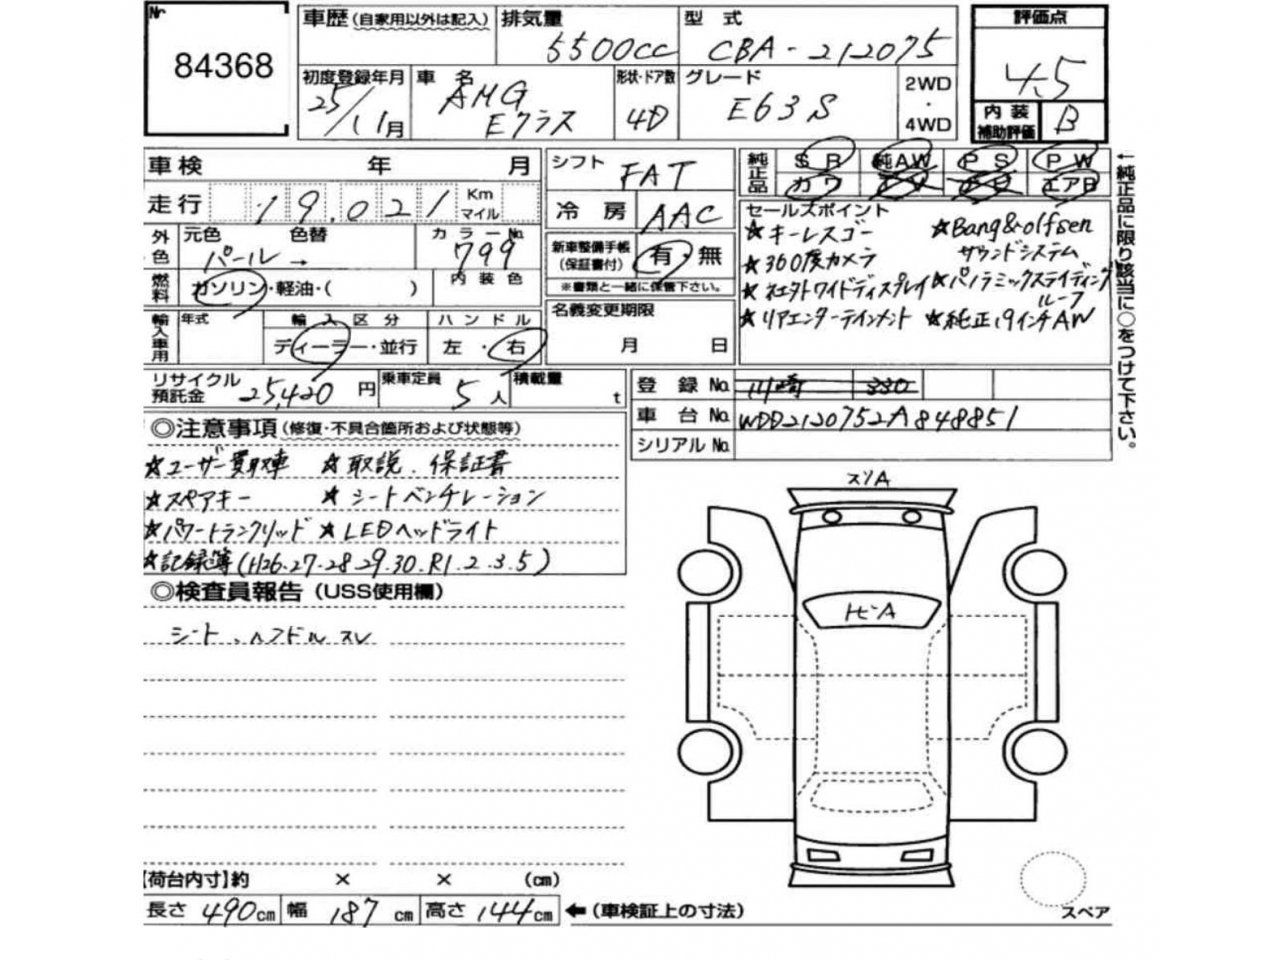 Nr
84368
車歴(自家用以外は記入)
排気量
5500cc
型式
CBA-212075
評価点
4.5
内装
補助評価
B
初度登録年月
25/11月
車名
AMG
Eクラス
形状・ドア数
4D
グレード
E63S
2WD
・
4WD
車検 年 月
シフト
FAT
純正品
SR 純AW PS PW
カワ エアB
走行
19,021
Km
マイル
冷房
AAC
セールスポイント
★キーレスゴー
★360度カメラ
★リアエンターテインメント
★Bang&olfsen
サウンドシステム
★パノラミックスライディング
ルーフ
★純正19インチAW
←純正品に限り該当に○をつけて下さい。
外色
元色 色替
パール →
カラーNo.
799
新車整備手帳
(保証書付)
有・無
※書類と一緒に保管下さい。
燃料
ガソリン・軽油・( )
内装色
輸入車用
年式
輸入区分
ディーラー・並行
ハンドル
左・右
名義変更期限
月 日
リサイクル
預託金
25,420円
乗車定員
5人
積載量
t
登録No.
川崎 330
車台No.
WDD2120752A848851
シリアルNo.
◎注意事項(修復・不具合箇所および状態等)
★ユーザー買取車 ★取説.保証書
★スペアキー ★シートベンチレーション
★パワートランクリッド ★LEDヘッドライト
★記録簿(H26.27.28.29.30.R1.2.3.5)
◎検査員報告(USS使用欄)
シート、ハンドルスレ
スリA
トビA
スペア
【荷台内寸】約 × × (cm)
長さ 490cm 幅 187cm 高さ 144cm ←(車検証上の寸法)